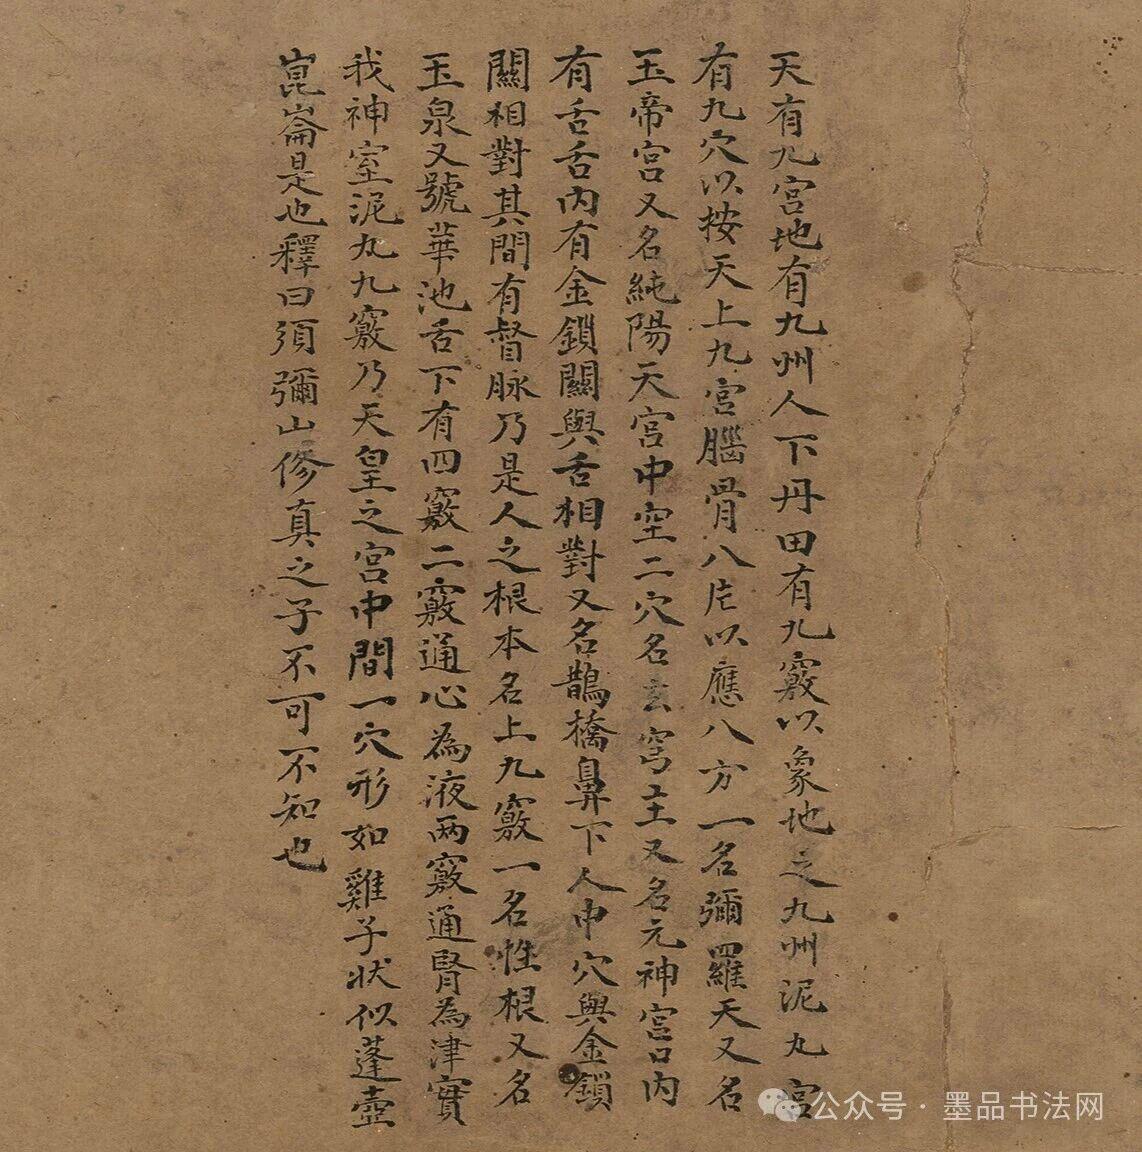 天有九宮地有九州人下丹田有九竅以象地之九州泥丸宮
有九穴以按天上九宮腦骨八片以應八方一名彌羅天又名
玉帝宮又名純陽天宮中空一穴名玄穹主又名元神宮口內
有舌舌內有金鎖關與舌相對又名鵲橋鼻下人中穴與金鎖
關相對其間有督脉乃是人之根本名上九竅一名性根又名
玉泉又號華池舌下有四竅二竅通心為液两竅通腎為津實
我神室泥丸九竅乃天皇之宮中間一穴形如雞子状似蓬壺
崑崙是也釋曰須彌山修真之子不可不知也
公众号·墨品书法网